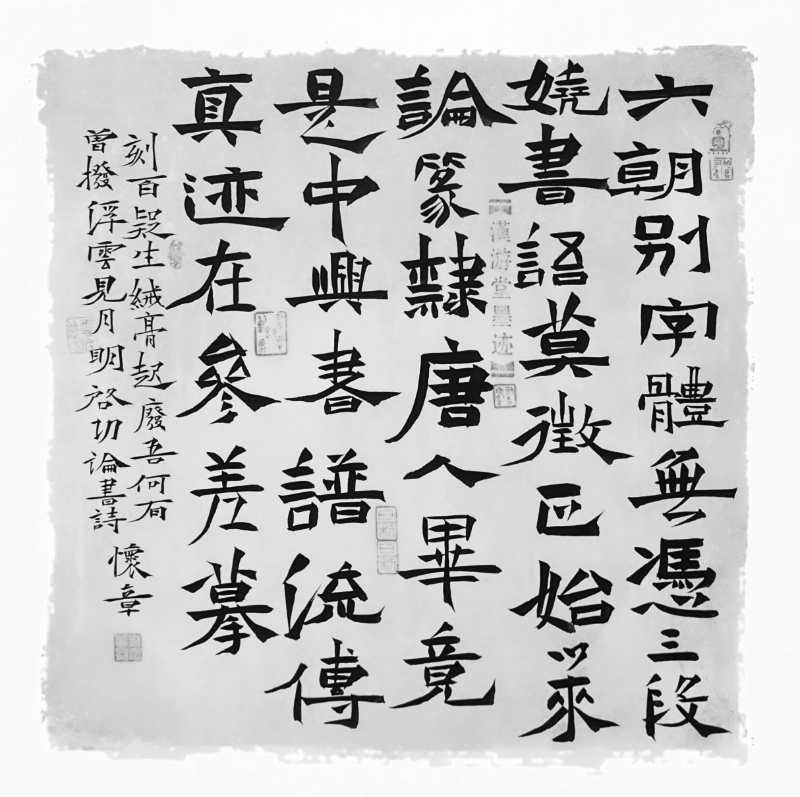 六朝別字體無憑三段
嬈書語莫徵正始以來
論篆隸唐人畢竟
是中興書譜流傳
真迹在參差摹
刻百疑生鍼膏起廢吾何有
曾撥浮雲見月明启功論書詩
懷章
漢游堂墨迹